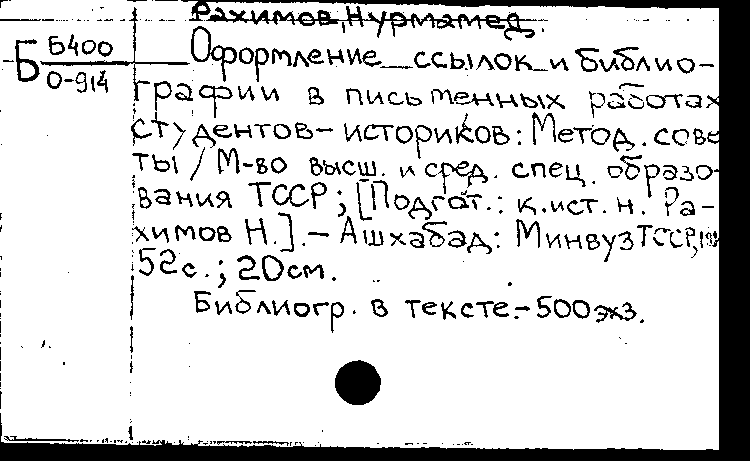 Рахимов, Нурмамед.
Б Б400
О-914
Оформление ссылок и библио-
графии в письменных работах
студентов-историков: Метод. сове
ты / М-во высш. и сред. спец. образо-
вания ТССР; [Подгот.: к.ист.н. Ра-
химов Н.].- Ашхабад: Минвуз ТССР,
52с.; 20см.
Библиогр. в тексте.- 500 экз.